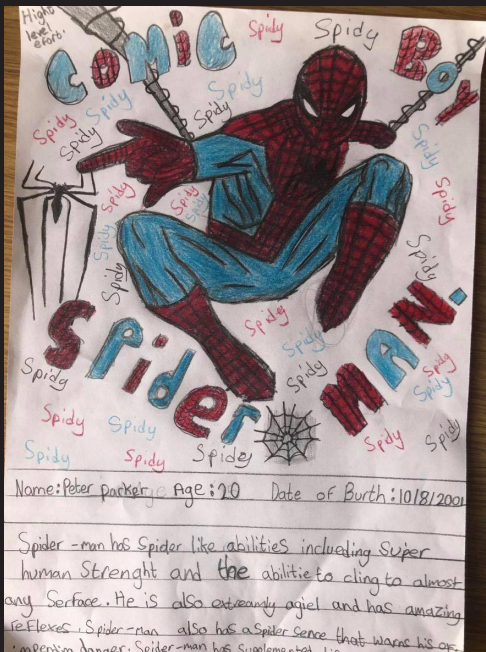 High
level
effort.
COMIC BOY
Spidy Spidy
Spidy Spidy
Spidy Spidy
Spidy
Spidy
Spidy Spidy
Spidy
Spidy Spidy
Spidy
Spidy
Spidy
Spidy
Spidy
SPider MAN.
Spidy Spidy Spidy
Spidy
Spidy Spidy Spidy Spidy
Spidy Spidy Spidy
Name: Peter parker Age: 20 Date of Burth: 10/8/2001
Spider-man has Spider like abilities inclueding Super
human Strenght and the abilitie to cling to almost
any Serface. He is also extreamly agiel and has amazing
reflexes. Spider-man also has a Spider sence that warns his of
impenting danger. Spider-man has supplemented